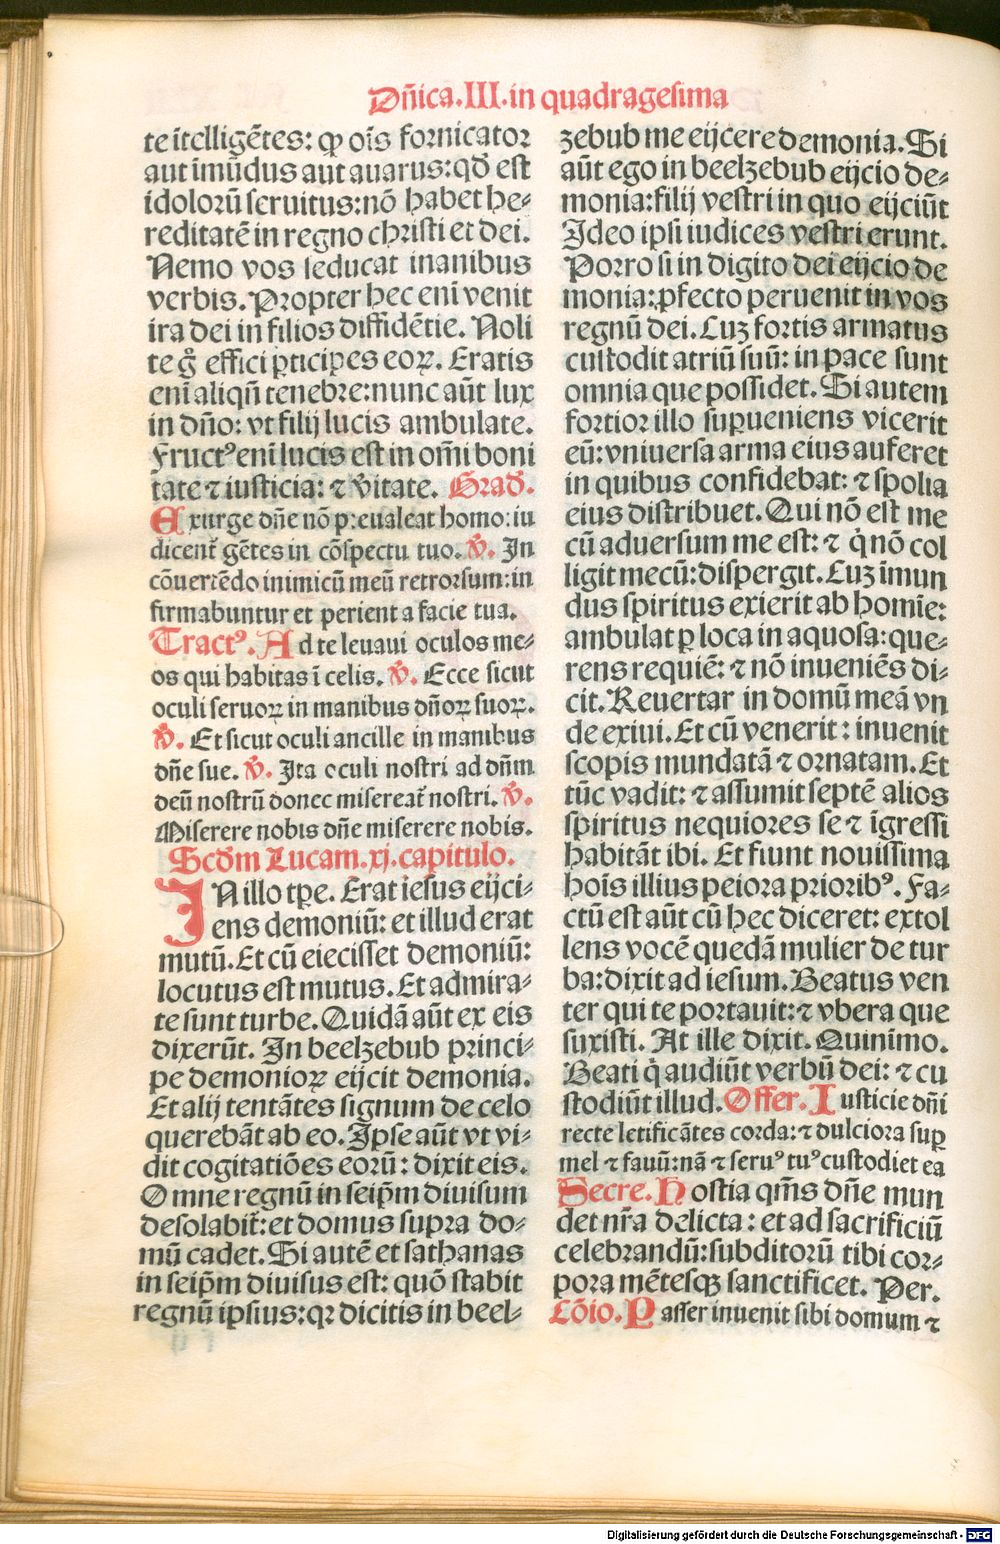 Dñica.III.in quadragesima
te ītelligētes: ꝙ oīs fornicator
aut īmūdus aut auarus:qđ est
idolorū seruitus:nō habet he-
reditatē in regno christi et dei.
Nemo vos seducat inanibus
verbis. Propter hec enī venit
ira dei in filios diffidētie. Noli
te gͦ effici ꝑticipes eoꝝ. Eratis
enī aliqñ tenebre:nunc aūt lux
in dño: vt filij lucis ambulate.
Fructꝰ enī lucis est in om̄i boni
tate ⁊ iusticia: ⁊ v̄itate. Grad̄.
Exurge dñe nō p̄eualeat homo:iu
dicent᷑ gētes in cōspectu tuo. ℣. In
cōuertēdo inimicū meū retrorsum:in
firmabuntur et perient a facie tua.
Tractꝰ. Ad te leuaui oculos me-
os qui habitas ī celis. ℣. Ecce sicut
oculi seruoꝝ in manibus dñoꝝ suoꝝ.
℣. Et sicut oculi ancille in manibus
dñe sue. ℣. Ita oculi nostri ad dñm
deū nostrū donec misereat᷑ nostri. ℣.
Miserere nobis dñe miserere nobis.
Scd̄m Lucam.xj.capitulo.
IN illo tꝑe. Erat iesus eijci-
ens demoniū: et illud erat
mutū. Et cū eiecisset demoniū:
locutus est mutus. Et admira-
te sunt turbe. Quidā aūt ex eis
dixerūt. In beelzebub princi-
pe demonioꝝ eijcit demonia.
Et alij tentātes signum de celo
querebāt ab eo. Ipse aūt vt vi-
dit cogitatiōes eorū: dixit eis.
Omne regnū in seip̄m diuisum
desolabit᷑: et domus supra do-
mū cadet. Si autē et sathanas
in seip̄m diuisus est: quō stabit
regnū ipsius: qꝛ dicitis in beel-
zebub me eijcere demonia. Si
aūt ego in beelzebub eijcio de-
monia: filij vestri in quo eijciūt
Ideo ipsi iudices vestri erunt.
Porro si in digito dei eijcio de
monia: ꝓfecto peruenit in vos
regnū dei. Cuz fortis armatus
custodit atriū suū: in pace sunt
omnia que possidet. Si autem
fortior illo suꝑueniens vicerit
eū: vniuersa arma eius auferet
in quibus confidebat: ⁊ spolia
eius distribuet. Qui nō est me
cū aduersum me est: ⁊ q̇ nō col
ligit mecū: dispergit. Cuz īmun
dus spiritus exierit ab homīe:
ambulat ꝑ loca inaquosa: que-
rens requiē: ⁊ nō inueniēs di-
cit. Reuertar in domū meā vn
de exiui. Et cū venerit: inuenit
scopis mundatā ⁊ ornatam. Et
tūc vadit: ⁊ assumit septē alios
spiritus nequiores se ⁊ īgressi
habitāt ibi. Et fiunt nouissima
hoīs illius peiora prioribꝰ. Fa-
ctū est aūt cū hec diceret: extol
lens vocē quedā mulier de tur
ba: dixit ad iesum. Beatus ven
ter qui te portauit: ⁊ vbera que
suxisti. At ille dixit. Quinīmo.
Beati q̇ audiūt verbū dei: ⁊ cu
stodiūt illud. Offer. Iusticie dñi
recte letificātes corda: ⁊ dulciora suꝑ
mel ⁊ fauū: nā ⁊ seruꝰ tuꝰ custodiet ea
Secre. Hostia qm̄s dñe mun
det nr̄a delicta: et ad sacrificiū
celebrandū: subditorū tibi cor-
pora mētesqꝫ sanctificet. Per.
Cōio. Passer inuenit sibi domum ⁊
Digitalisierung gefördert durch die Deutsche Forschungsgemeinschaft - DFG